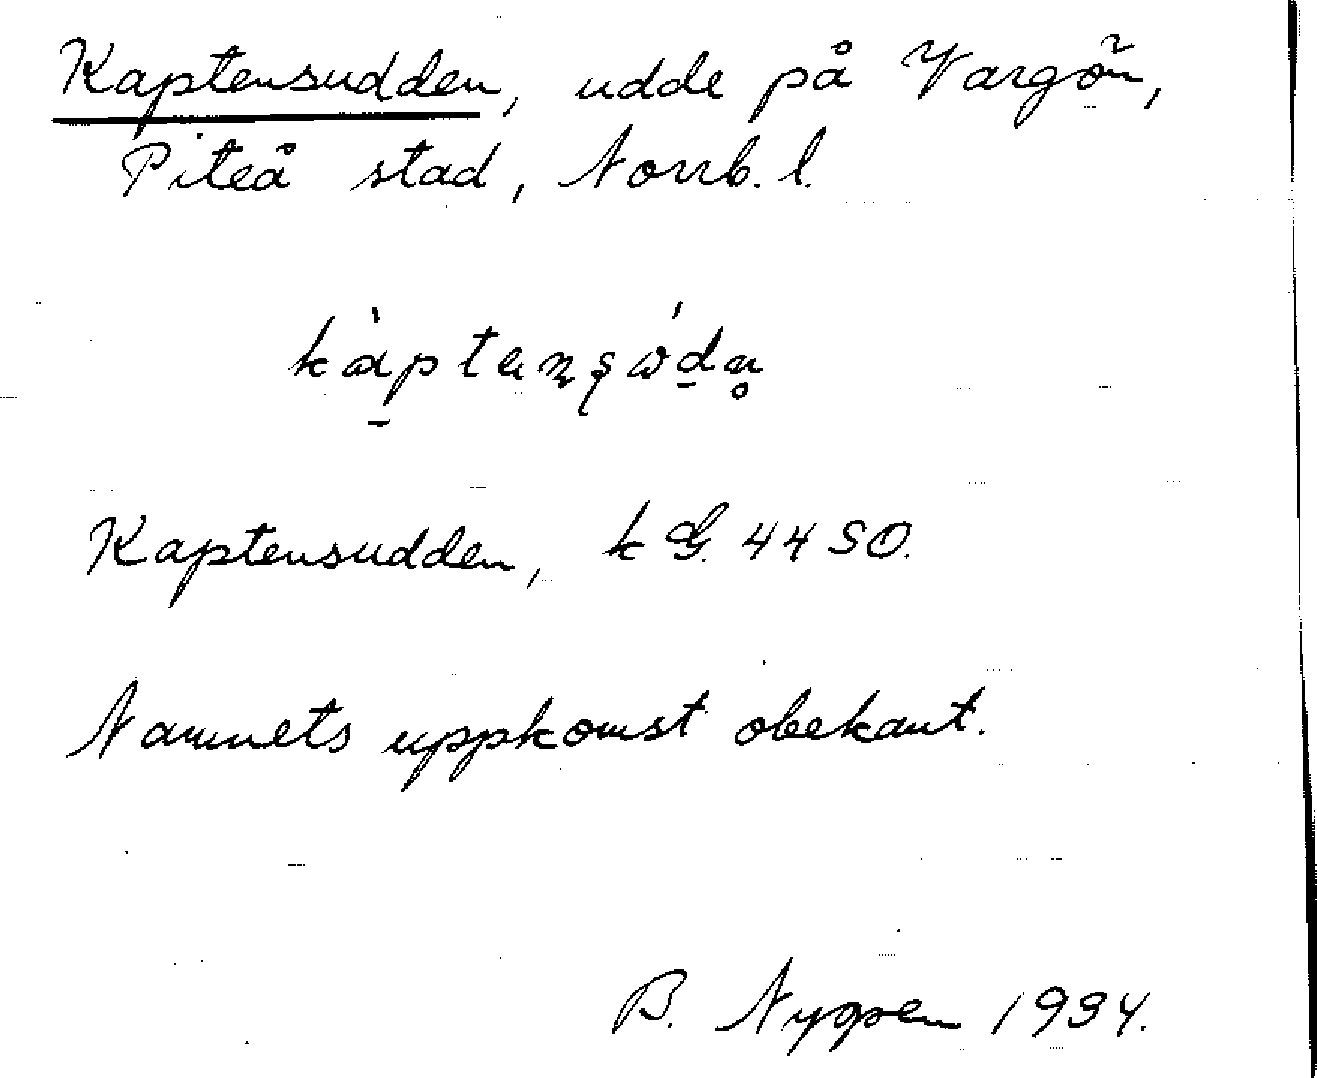 Kaptensudden, udde på Vargön,
Piteå stad, Norrb. l.
Kaptensudden, k G. 44 SO.
Namnets uppkomst obekant.
B. Nygren 1934.